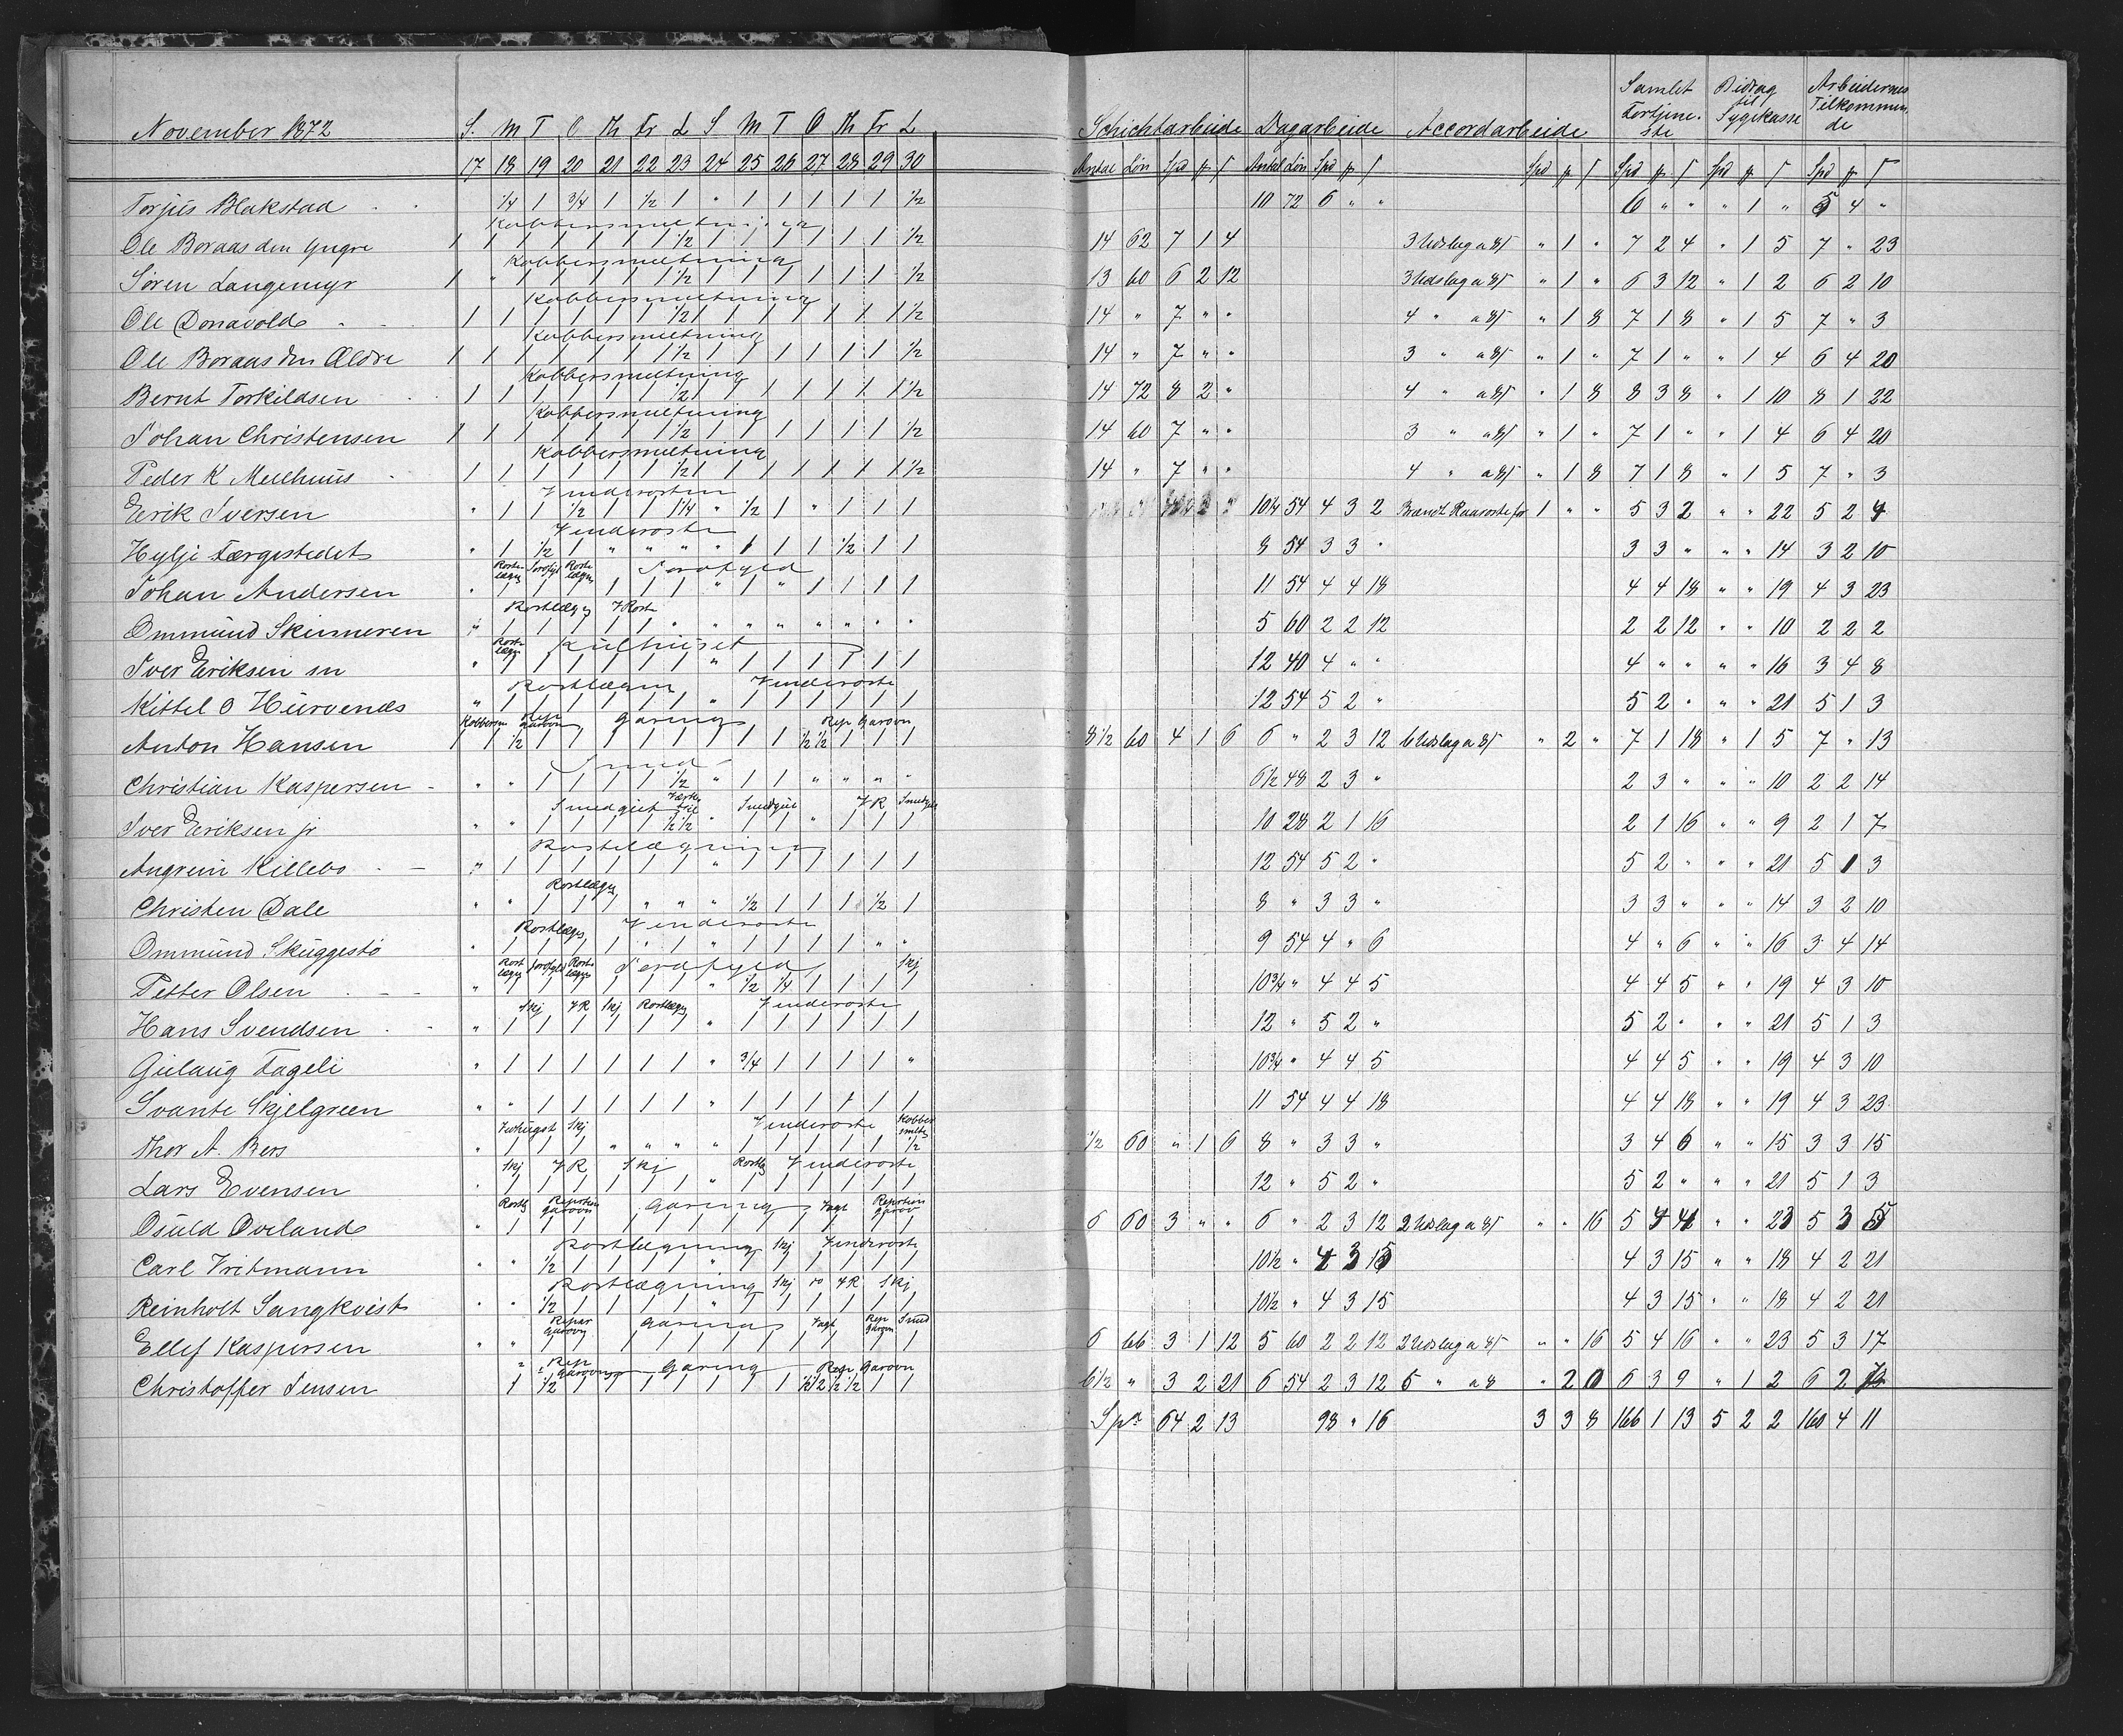 Samlet Bidrag Arbeidernes
November 1872 S. M T O Th Fr L S M T O Th Fr L Schichtarbeide Dagarbeide Accordarbeide Fortjeneste til Sygekasse Tilkommende
17 18 19 20 21 22 23 24 25 26 27 28 29 30 Antal Løn Spd # ſ Antal Løn Spd # ſ Spd # ſ Spd # ſ Spd # ſ Spd # ſ
Torjus Blakstad 1/4 1 3/4 1 1/2 1 " 1 1 1 1 1 1/2 10 72 6 " " 6 " " " 1 " 5 4 "
Kobbersmeltning
Ole Boraas den Yngre 1 1 1 1 1 1 1/2 1 1 1 1 1 1 1/2 14 62 7 1 4 3 Udslag a 8ſ " 1 " 7 2 4 " 1 5 7 " 23
Kobbersmeltning
Søren Langemyr 1 " 1 1 1 1 1/2 1 1 1 1 1 1 1/2 13 60 6 2 12 3 Udslag a 8ſ " 1 " 6 3 12 " 1 2 6 2 10
Kobbersmeltning
Ole Donavold 1 1 1 1 1 1 1/2 1 1 1 1 1 1 1 1/2 14 " 7 " " 4 " a 8ſ " 1 8 7 1 8 " 1 5 7 " 3
Kobbersmeltning
Ole Boraas den Ældre 1 1 1 1 1 1 1/2 1 1 1 1 1 1 1/2 14 " 7 " " 3 " a 8ſ " 1 " 7 1 " " 1 4 6 4 20
Kobbersmeltning
Bernt Torkildsen 1 1 1 1 1 1 1/2 1 1 1 1 1 1 1 1/2 14 72 8 2 " 4 " a 8ſ " 1 8 8 3 8 " 1 10 8 1 22
Kobbersmeltning
Johan Christensen 1 1 1 1 1 1 1/2 1 1 1 1 1 1 1/2 14 60 7 " " 3 " a 8ſ " 1 " 7 1 " " 1 4 6 4 20
Kobbersmeltning
Peder K Meelhuus 1 1 1 1 1 1 1/2 1 1 1 1 1 1 1 1/2 14 " 7 " " 4 " a 8ſ " 1 8 7 1 8 " 1 5 7 " 3
Venderosten
Eerik Iversen " 1 1 1/2 1 1 1 1/4 " 1/2 1 " 1 1 1 10 1/4 54 4 3 2 Brændt Raaroste for 1 " " 5 3 2 " " 22 5 2 4
Venderoste
Hylje Færgestedet " 1 1/2 1 " " " " 1 1 1 1/2 1 1 8 54 3 3 " 3 3 " " " 14 3 2 10
Rostlægg Jordfyld Rostlægg Jordfyld
Johan Andersen " 1 1 1 1 1 1 " 1 " 1 1 1 1 11 54 4 4 18 4 4 18 " " 19 4 3 23
Rostlægg V Rost
Ommund Skinmeren " 1 1 1 1 1 " " " " " " " " 5 60 2 2 12 2 2 12 " " 10 2 2 2
Rostlægg Kulhuset
Iver Eriksen sn " 1 1 1 1 1 1 " 1 1 1 1 1 1 12 40 4 " " 4 " " " " 16 3 4 8
Rostlægn Venderoste
Kittel O Hurvenes " 1 1 1 1 1 1 " 1 1 1 1 1 1 12 54 5 2 " 5 2 " " " 21 5 1 3
Kobbersm Repr Garovn Garing Rep Garovn
Anton Hansen 1 1 1/2 1 1 1 1 1 1 1 1/2 1/2 1 1 1 8 1/2 60 4 1 6 6 " 2 3 12 6 Udslag a 8ſ " 2 " 7 1 18 " 1 5 7 " 13
Smed
Christian Kaspersen " " 1 1 1 1 1/2 " 1 1 " " " " 6 1/2 48 2 3 " 2 3 " " " 10 2 2 14
Smedgut Smedgut V R Smedgut
Iver Eriksen jr " " 1 1 1 1 1/2 1/2 " 1 1 " 1 1 1 10 28 2 1 16 2 1 16 " " 9 2 1 7
Rostelægning
Angrim Killebo " 1 1 1 1 1 1 " 1 1 1 1 1 1 12 54 5 2 " 5 2 " " " 21 5 1 3
Rostlægg
Christen Dale " " 1 1 1 " " " 1/2 1 1 1 1/2 1 8 " 3 3 " 3 3 " " " 14 3 2 10
Rostlægg Venderoste
Ommund Skuggestø " 1 1 1 1 " 1 " 1 1 1 1 " " 9 54 4 " 6 4 " 6 " " 16 3 4 14
Rostlægg Jordfyld Rostlægg Jordfyld Skj
Petter Olsen " 1 1 1 1 1 1 " 1/2 1/4 1 1 1 1 10 3/4 " 4 4 5 4 4 5 " " 19 4 3 10
Skj V R Skj Rostlægg Venderoste
Hans Svendsen " 1 1 1 1 1 1 " 1 1 1 1 1 1 12 " 5 2 " 5 2 " " " 21 5 1 3
Gulaug Fageli " 1 1 1 1 1 1 " 3/4 1 1 1 1 " 10 3/4 " 4 4 5 4 4 5 " " 19 4 3 10
Svante Skjelgreen " " 1 1 1 1 1 " 1 1 1 1 1 1 11 54 4 4 18 4 4 18 " " 19 4 3 23
Skj Venderoste Kobbersmeltg
Thor A. Bers " 1 1 1 " " " " 1 1 1 1 1 1/2 1/2 60 " 1 6 8 " 3 3 " 3 4 6 " " 15 3 3 15
Skj V R Skj Rostlg Venderoste
Lars Evensen " 1 1 1 1 1 1 " 1 1 1 1 1 1 12 " 5 2 " 5 2 " " " 21 5 1 3
Rostlg Garovn Garing Vagt
Osuld Oveland " 1 1 1 1 1 1 1 1 1 1 1 1 6 60 3 " " 6 " 2 3 12 2 Udslag a 8ſ " " 16 5 4 4 " " 23 5 3 5
Rostlægning Skj Venderoste
Carl Vritmann " " 1/2 1 1 1 1 " 1 1 1 1 1 1 10 1/2 " 4 3 15 4 3 15 " " 18 4 2 21
Rostlægning Skj V R Skj
Reinholt Sangkvist " " 1/2 1 1 1 1 " 1 1 1 1 1 1 10 1/2 " 4 3 15 4 3 15 " " 18 4 2 21
Repar Garovn Garing Vagt Rep Garovn Smed
Ellef Kaspersen " " 1 1 1 1 1 1 1 1 1 1 1 6 66 3 1 12 5 60 2 2 12 2 Udslag a 8ſ " " 16 5 4 16 " " 23 5 3 17
Rep Garovn Garing Rep Garovn
Christoffer Jensen 1 1/2 1 1 1 1 1 1 1 1 1/2 1/2 1/2 1 1 6 1/2 " 3 2 21 6 54 2 3 12 5 " a 8 " 2 0 6 3 9 " 1 2 6 2
Spd 64 2 13 98 " 16 3 3 8 166 1 13 5 2 2 160 4 11